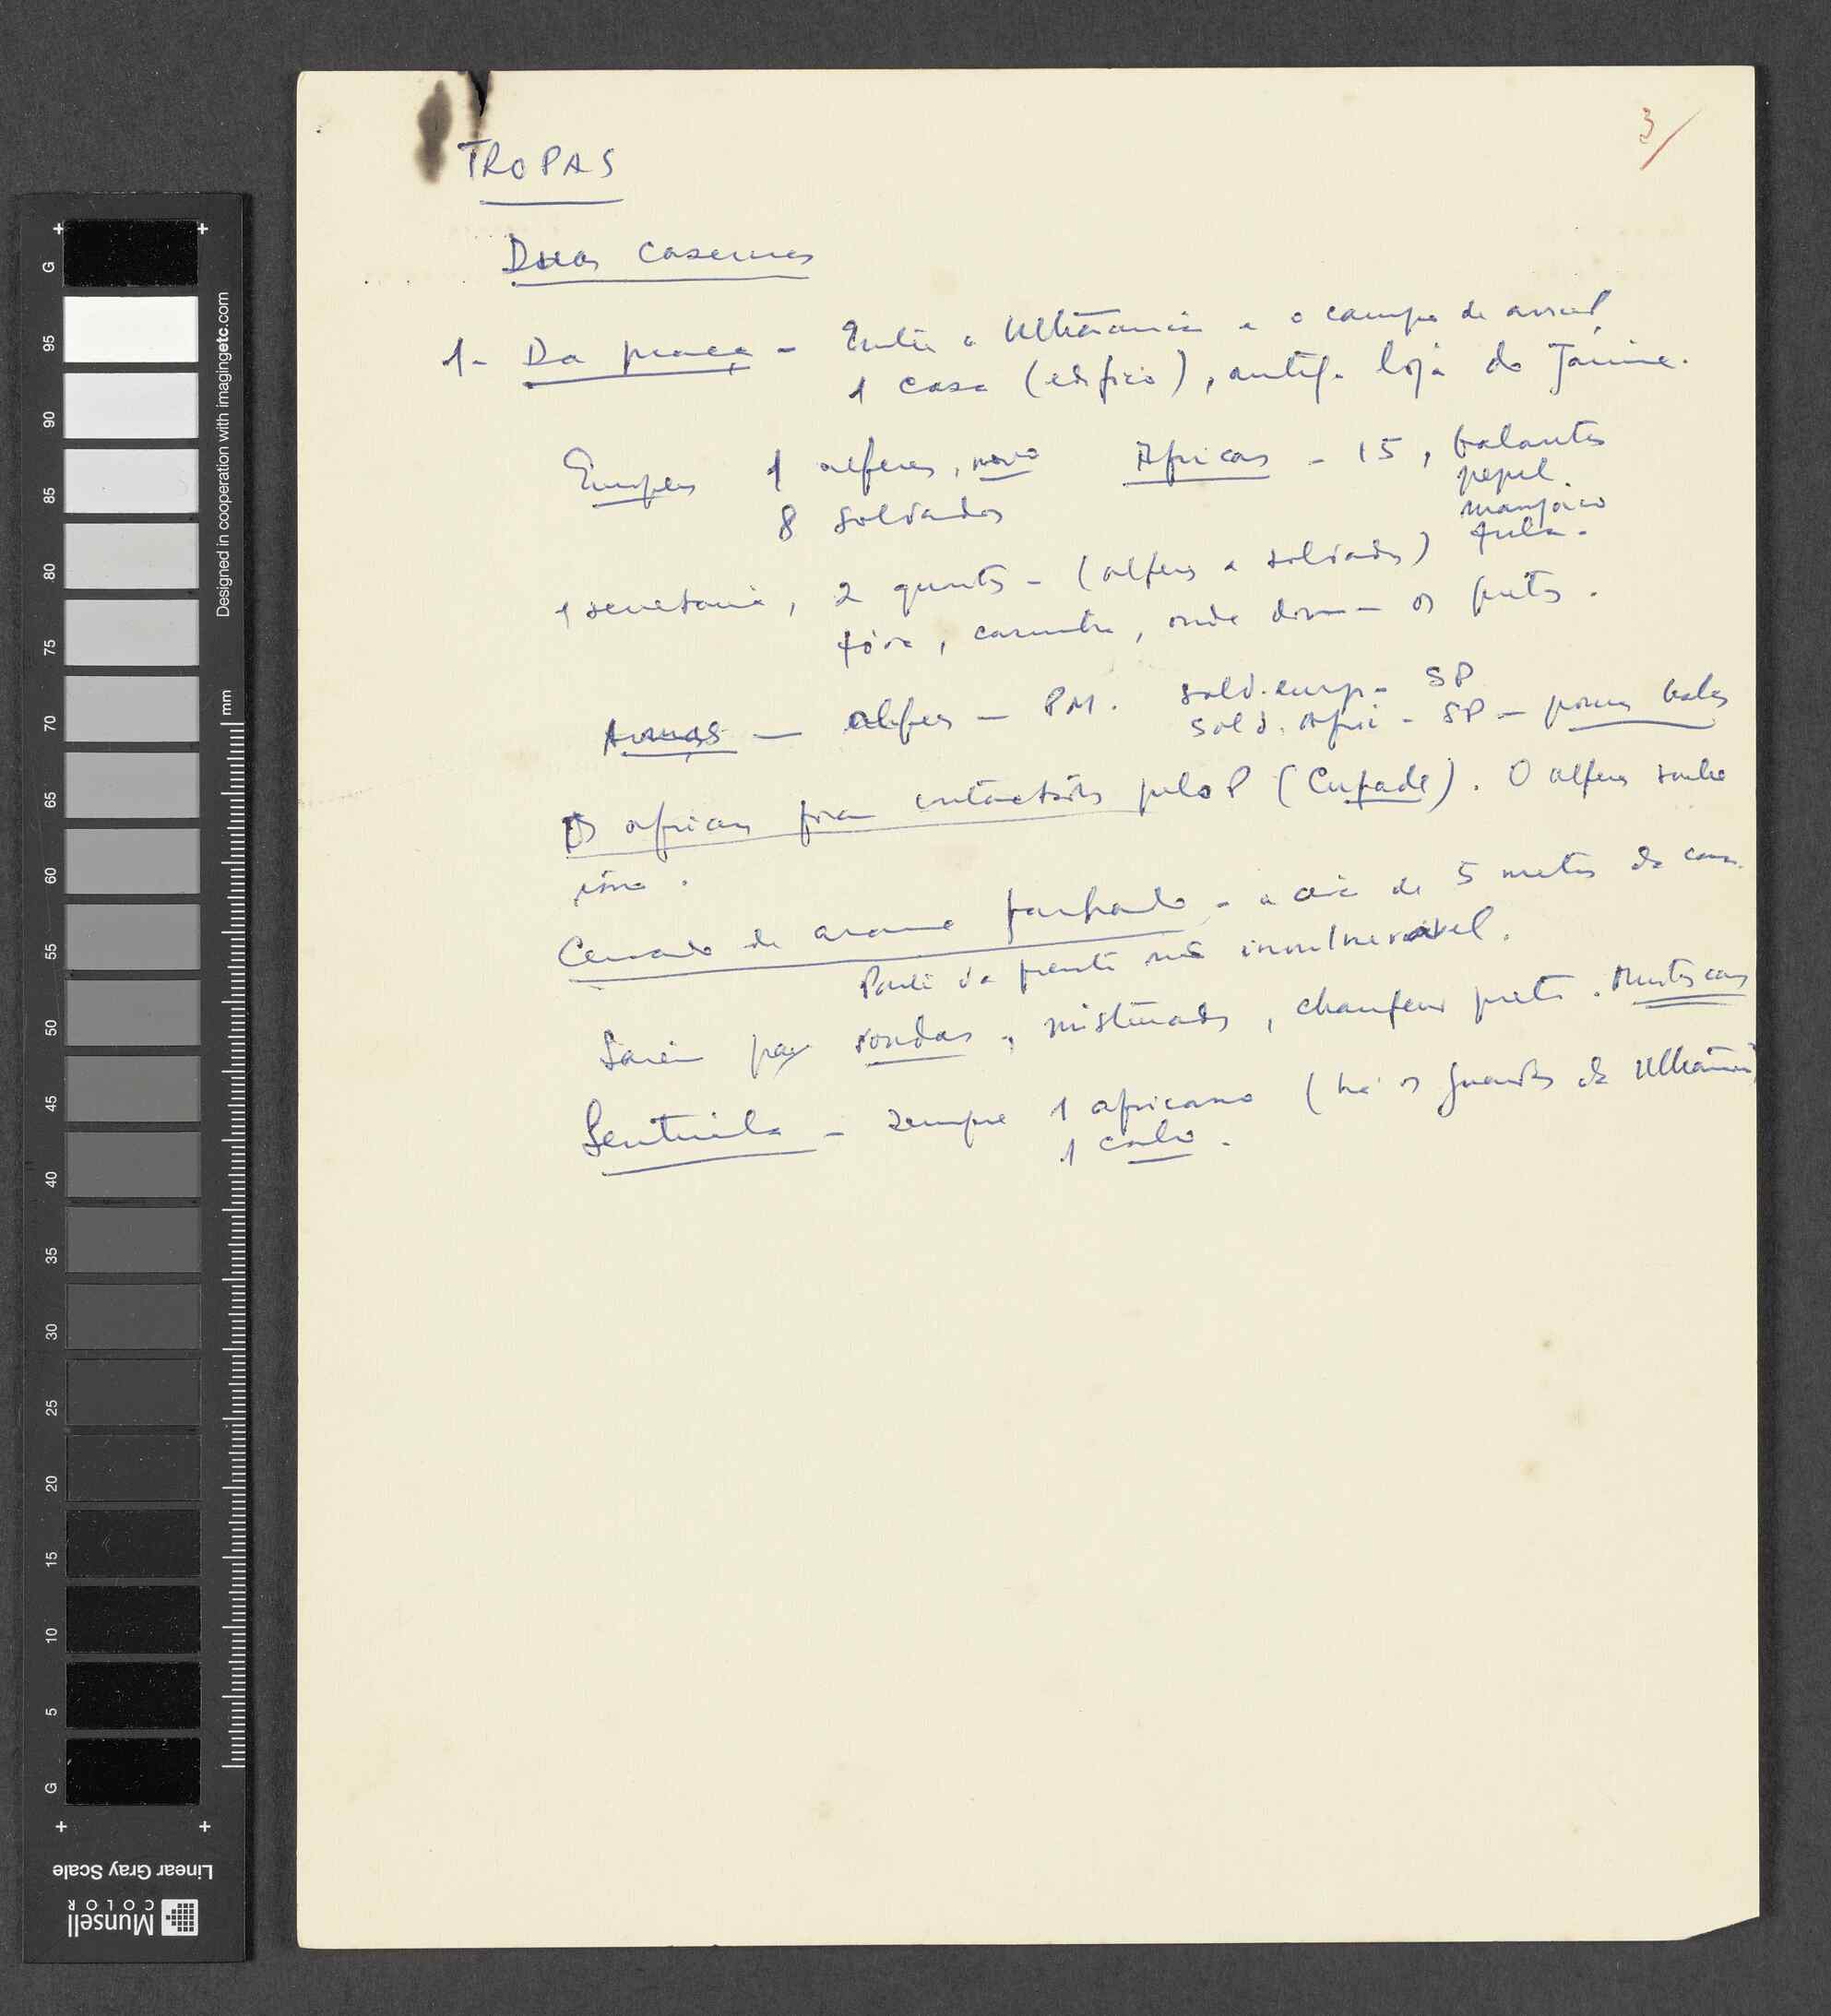 3/
TROPAS
Duas casernas
1- Da praça - Entre a Ultramarina e o campo de
1 casa (edifício), antiga loja do Jaime.
Europeus 1 alferes, novo Africanos - 15, balantas
8 soldados pepel
manjaco
fula.
1 secretaria, 2 quartos - (alferes e soldados)
fóra, casinha, onde dormem os pretos.
Armas - alferes - PM. sold. europ - SP
sold. Afri - SP - poucas balas
Os africanos foram contactados pelo P (Cufade). O alferes soube
Cercado de arame farpado - a cerca de 5 metros da casa.
Parte da frente mais invulneravel.
Saiem para rondas, misturados, chaufeur preto. Muitas
Sentinela - sempre 1 africano (há os guardas da Ultramarina)
1 cabo.
G
95
90
85
80
75
70
65
60
55
50
45
40
35
30
25
20
15
10
5
G
mm
Designed in cooperation with imagingetc.com
Linear Gray Scale
Munsell
COLOR